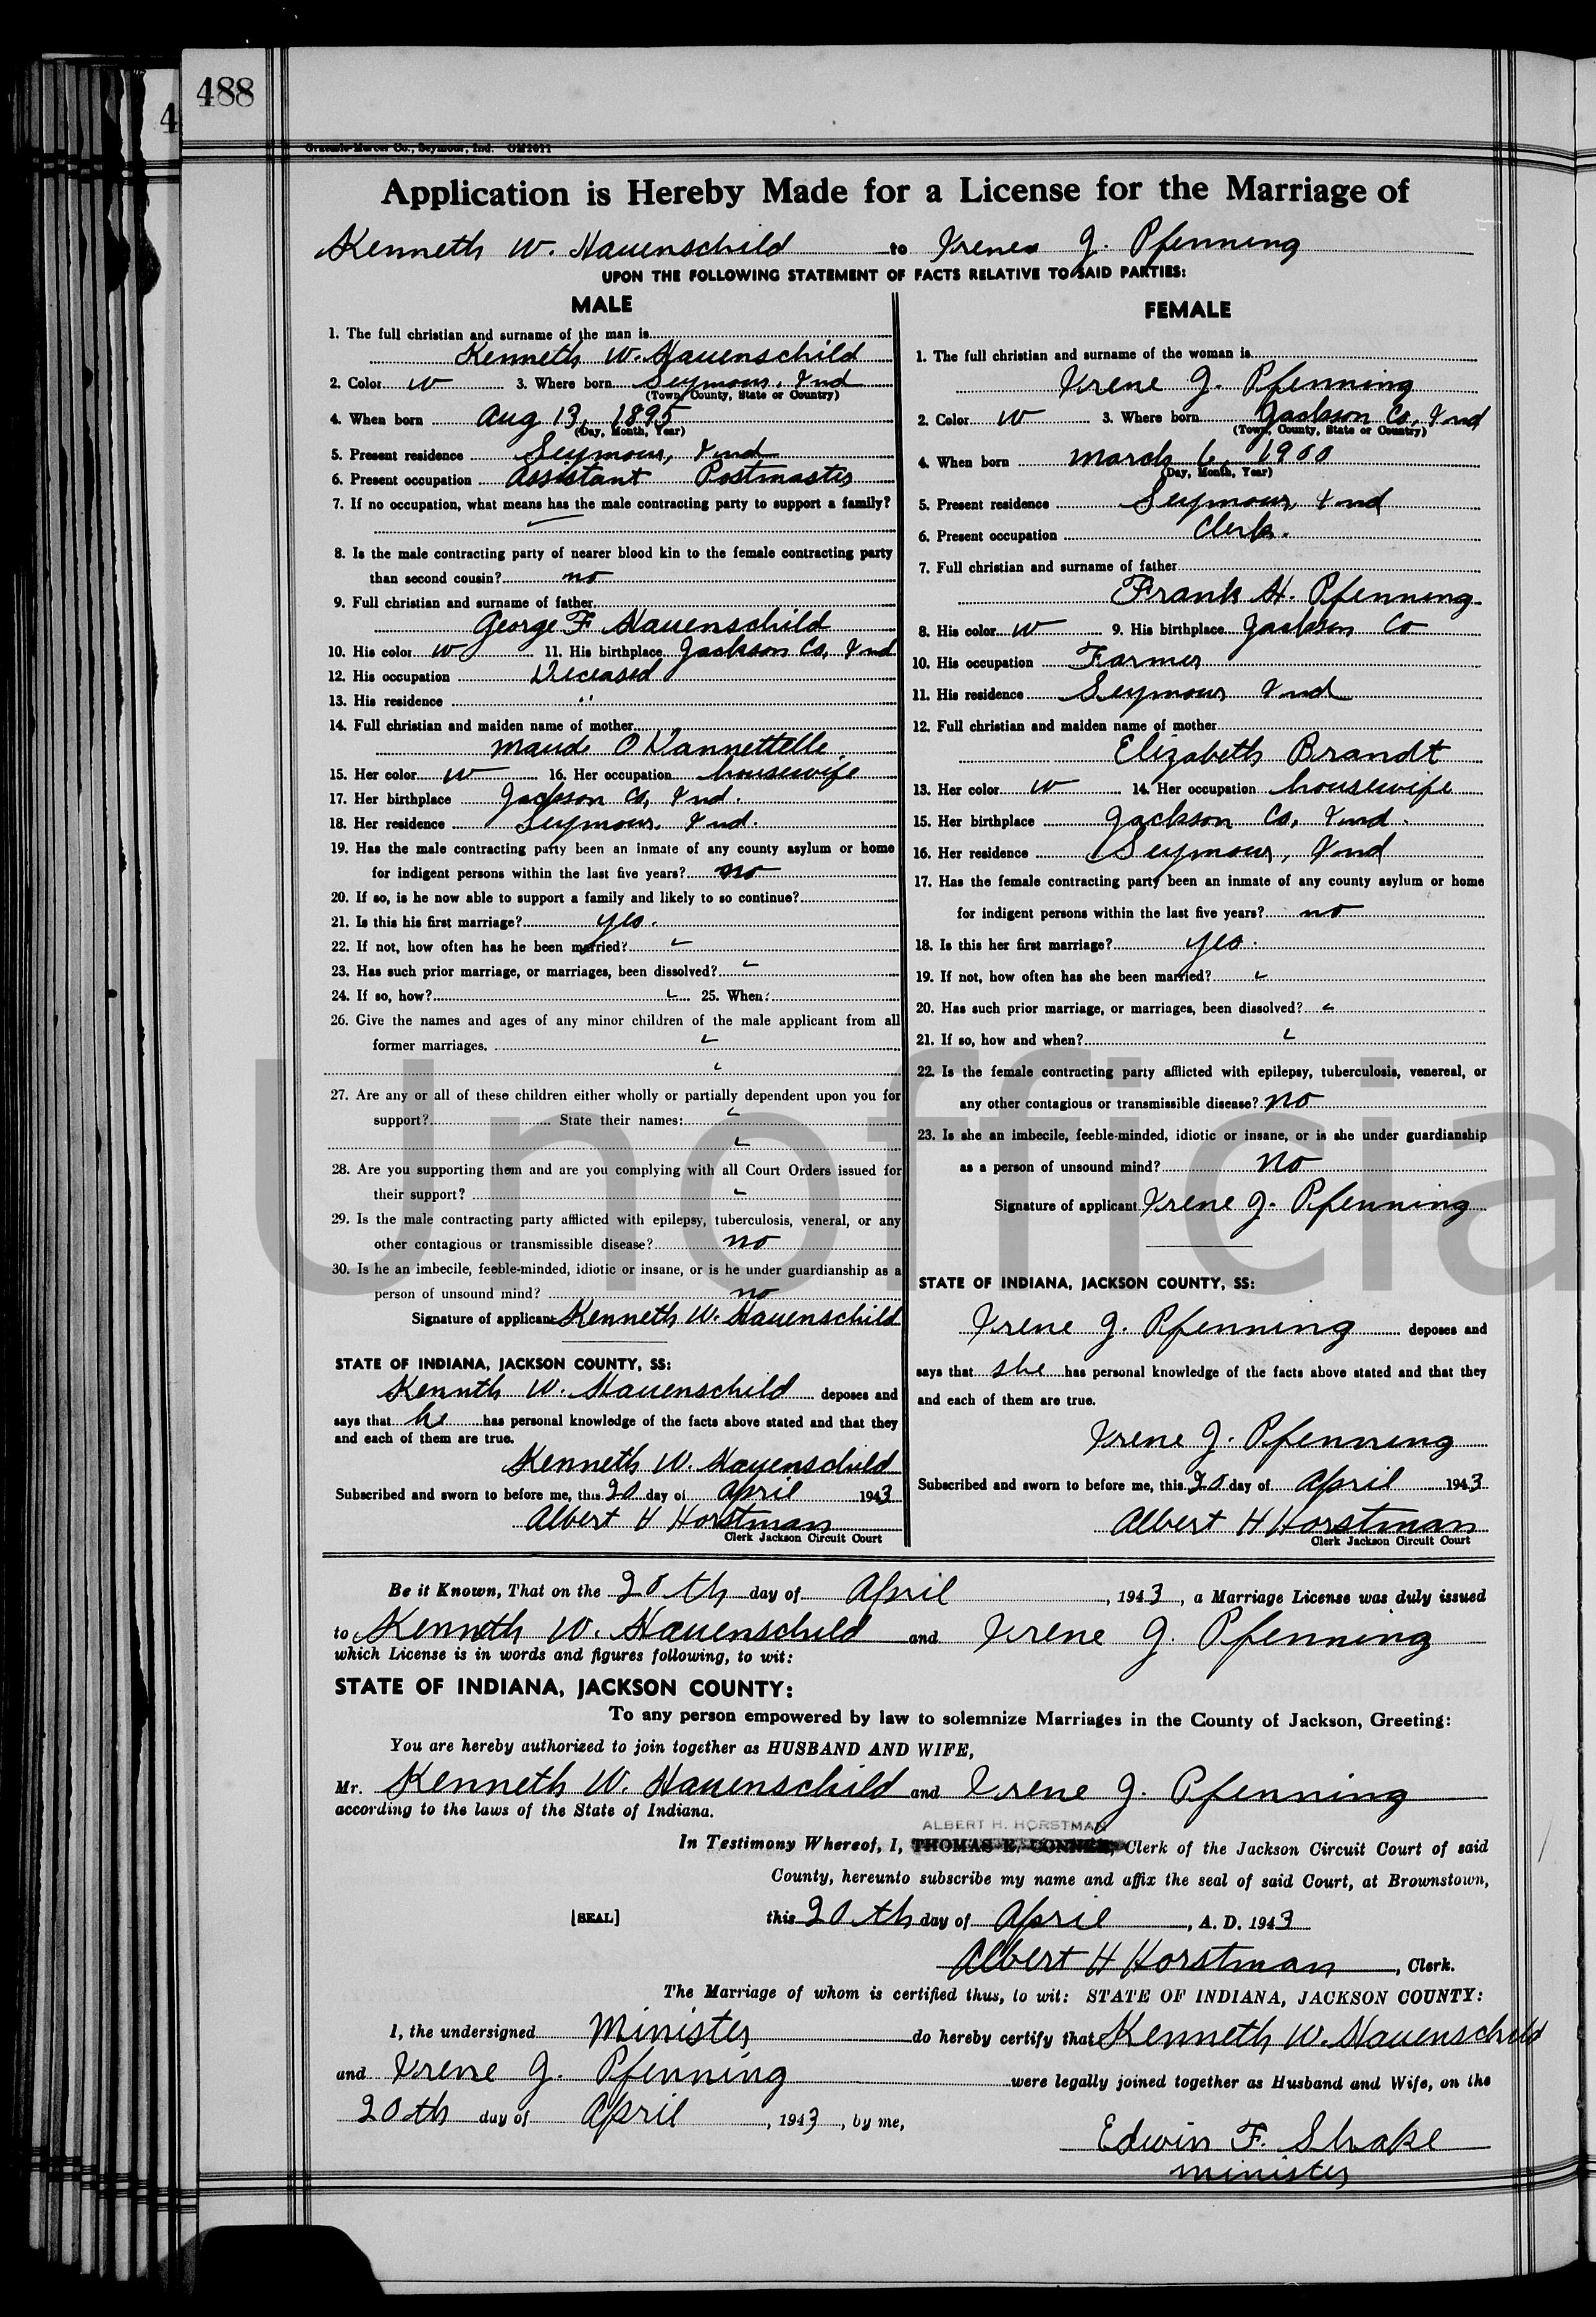 488
4
Graessle-Mercer Co., Seymour, Ind. GM2011
Application is Hereby Made for a License for the Marriage of
Kenneth W. Hauenschild to Irene J. Pfenning
UPON THE FOLLOWING STATEMENT OF FACTS RELATIVE TO SAID PARTIES:
MALE
1. The full christian and surname of the man is
Kenneth W. Hauenschild
2. Color W 3. Where born Seymour, Ind
(Town, County, State or Country)
4. When born Aug 13, 1895
(Day, Month, Year)
5. Present residence Seymour, Ind
6. Present occupation Assistant Postmaster
7. If no occupation, what means has the male contracting party to support a family?
8. Is the male contracting party of nearer blood kin to the female contracting party
than second cousin? no
9. Full christian and surname of father
George F Hauenschild
10. His color W 11. His birthplace Jackson Co, Ind
12. His occupation Deceased
13. His residence "
14. Full christian and maiden name of mother
Maude O Vannettelle
15. Her color W 16. Her occupation housewife
17. Her birthplace Jackson Co, Ind.
18. Her residence Seymour, Ind.
19. Has the male contracting party been an inmate of any county asylum or home
for indigent persons within the last five years? no
20. If so, is he now able to support a family and likely to so continue?
21. Is this his first marriage? yes.
22. If not, how often has he been married?
23. Has such prior marriage, or marriages, been dissolved?
24. If so, how? 25. When?
26. Give the names and ages of any minor children of the male applicant from all
former marriages.
27. Are any or all of these children either wholly or partially dependent upon you for
support? State their names:
28. Are you supporting them and are you complying with all Court Orders issued for
their support?
29. Is the male contracting party afflicted with epilepsy, tuberculosis, veneral, or any
other contagious or transmissible disease? no
30. Is he an imbecile, feeble-minded, idiotic or insane, or is he under guardianship as a
person of unsound mind? no
Signature of applicant Kenneth W. Hauenschild
STATE OF INDIANA, JACKSON COUNTY, SS:
Kennth W. Hauenschild deposes and
says that he has personal knowledge of the facts above stated and that they
and each of them are true.
Kenneth W. Hauenschild
Subscribed and sworn to before me, this 20 day of April 1943
Albert H Horstman
Clerk Jackson Circuit Court
FEMALE
1. The full christian and surname of the woman is
Irene J. Pfenning
2. Color W 3. Where born Jackson Co, Ind
(Town, County, State or Country)
4. When born March 6, 1900
(Day, Month, Year)
5. Present residence Seymour, Ind
6. Present occupation Clerk.
7. Full christian and surname of father
Frank H. Pfenning
8. His color W 9. His birthplace Jackson Co
10. His occupation Farmer
11. His residence Seymour Ind
12. Full christian and maiden name of mother
Elizabeth Brandt
13. Her color W 14. Her occupation housewife
15. Her birthplace Jackson Co, Ind.
16. Her residence Seymour, Ind
17. Has the female contracting party been an inmate of any county asylum or home
for indigent persons within the last five years? no
18. Is this her first marriage? yes.
19. If not, how often has she been married?
20. Has such prior marriage, or marriages, been dissolved?
21. If so, how and when?
22. Is the female contracting party afflicted with epilepsy, tuberculosis, venereal, or
any other contagious or transmissible disease? no
23. Is she an imbecile, feeble-minded, idiotic or insane, or is she under guardianship
as a person of unsound mind? no
Signature of applicant Irene J. Pfenning
STATE OF INDIANA, JACKSON COUNTY, SS:
Irene J. Pfenning deposes and
says that she has personal knowledge of the facts above stated and that they
and each of them are true.
Irene J. Pfenning
Subscribed and sworn to before me, this 20 day of April 1943
Albert H Horstman
Clerk Jackson Circuit Court
Be it Known, That on the 20th day of April, 1943, a Marriage License was duly issued
to Kennth W. Hauenschild and Irene J. Pfenning
which License is in words and figures following, to wit:
STATE OF INDIANA, JACKSON COUNTY:
To any person empowered by law to solemnize Marriages in the County of Jackson, Greeting:
You are hereby authorized to join together as HUSBAND AND WIFE,
Mr. Kenneth W. Hauenschild and Irene J. Pfenning
according to the laws of the State of Indiana.
ALBERT H. HORSTMAN
In Testimony Whereof, I, THOMAS E. CONNER, Clerk of the Jackson Circuit Court of said
County, hereunto subscribe my name and affix the seal of said Court, at Brownstown,
[SEAL] this 20th day of April, A. D. 1943
Albert H Horstman, Clerk.
The Marriage of whom is certified thus, to wit: STATE OF INDIANA, JACKSON COUNTY:
I, the undersigned Minister do hereby certify that Kenneth W. Hauenschild
and Irene J. Pfenning were legally joined together as Husband and Wife, on the
20th day of April, 1943, by me,
Edwin F. Shake
Minister
Unofficia